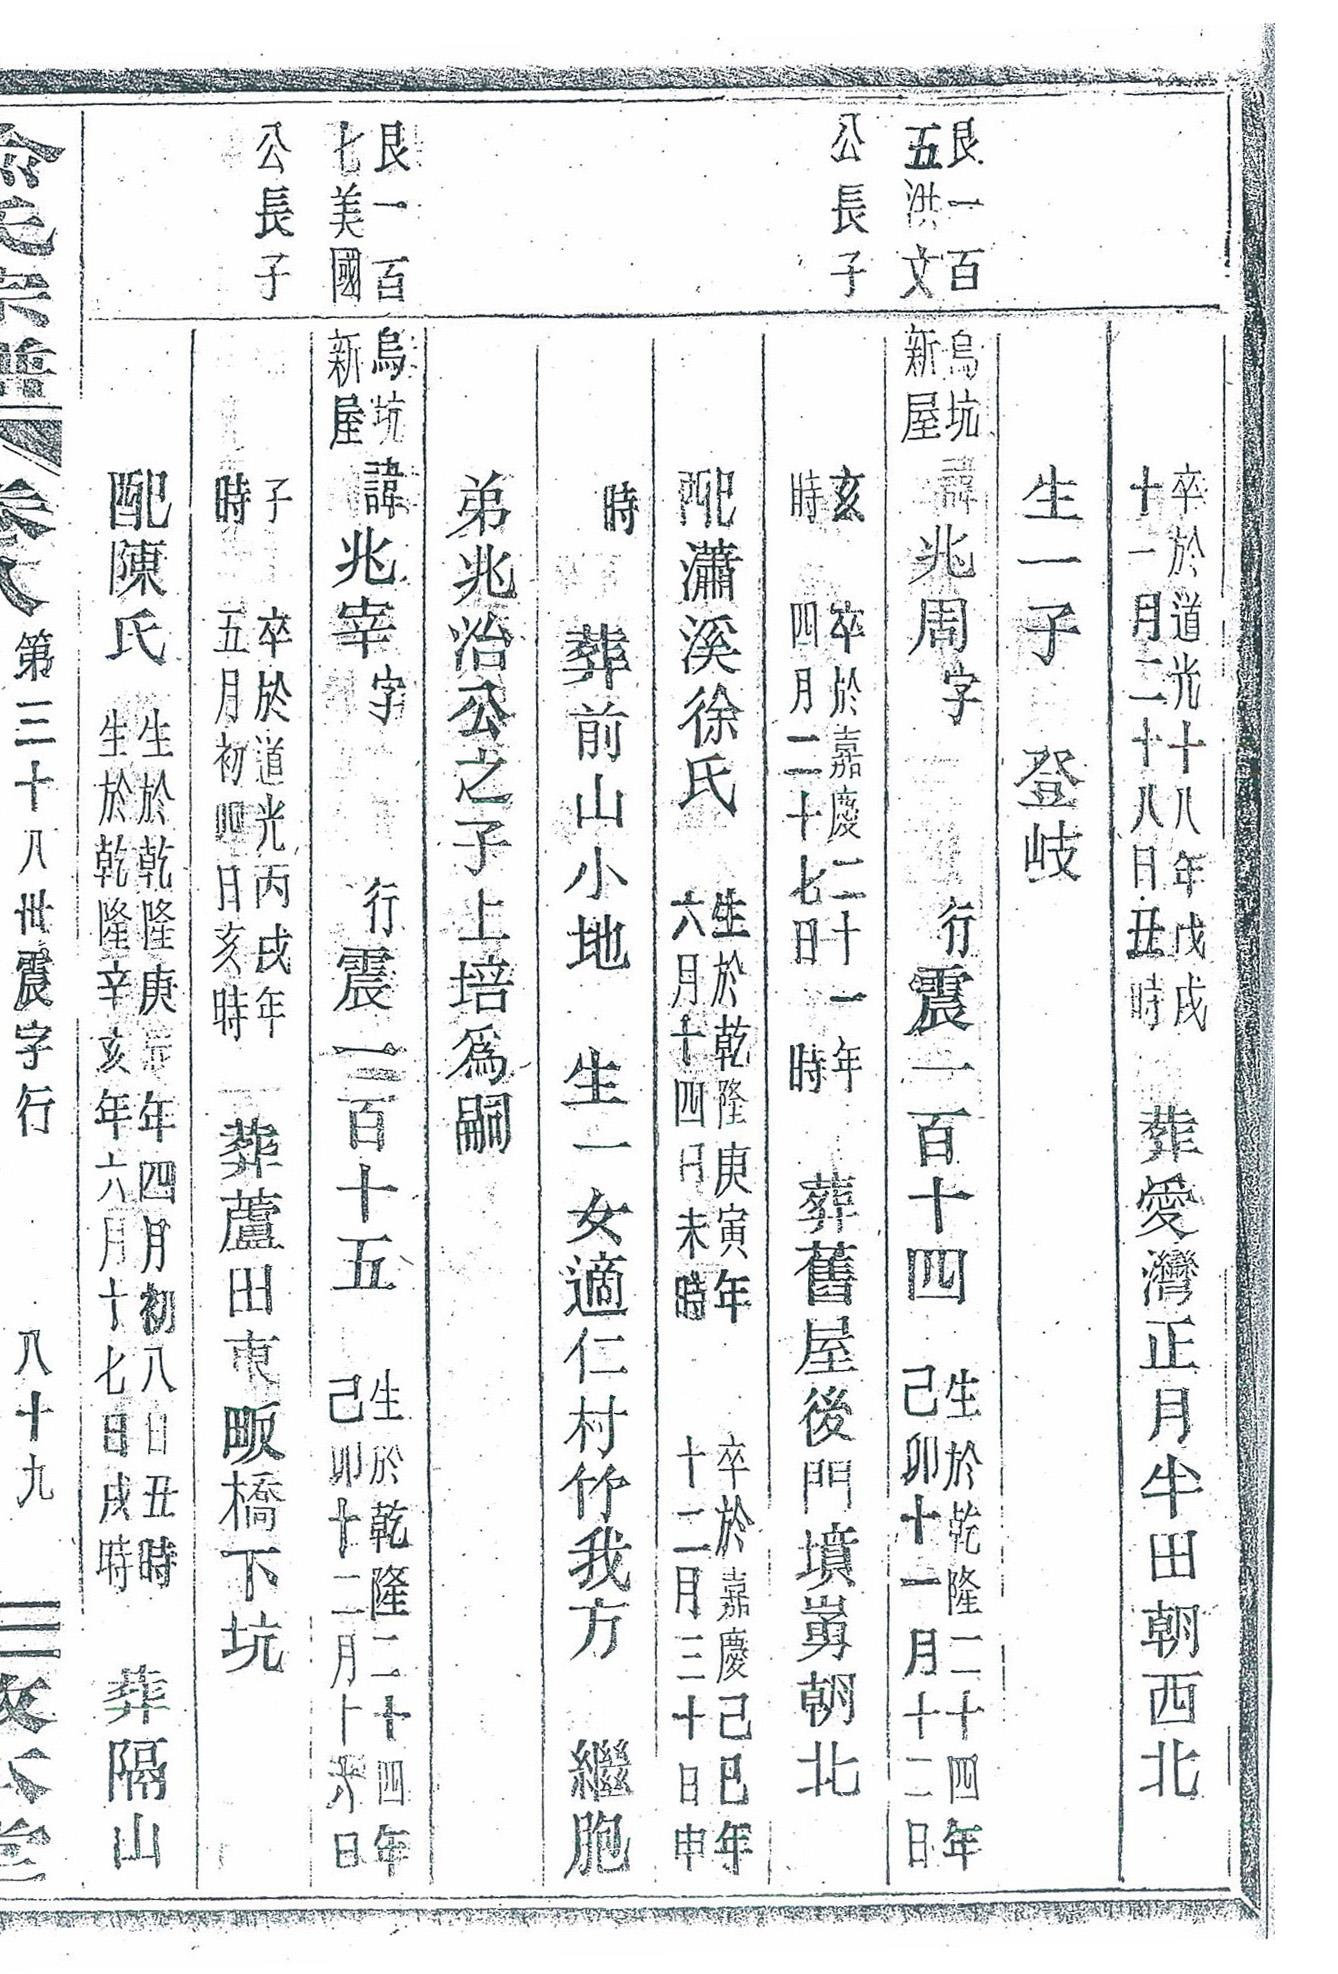 卒於道光十八年戊戌
十一月二十八日丑時
葬愛灣正月半田朝西北
生一子 登岐
艮一百
五洪文
公長子
烏坑
新屋
諱兆周字 行震一百十四
生於乾隆二十四年
己卯十一月十二日
亥
時
卒於嘉慶二十一年
四月二十七日 時
葬舊屋後門墳前朝北
配瀟溪徐氏
生於乾隆庚寅年
六月十四日未時
卒於嘉慶己巳年
十二月三十日申
時 葬前山小地 生一女適仁村竹我方 繼胞
弟兆治公之子上培爲嗣
艮一百
七美國
公長子
烏坑
新屋
諱兆宰字 行震一百十五
生於乾隆二十四年
己卯十二月十 日
子
時
卒於道光丙戌年
五月初 日亥時
葬蘆田東畈橋下坑
配陳氏
生於乾隆庚 年四月初八日丑時
生於乾隆辛亥年六月十七日戌時
葬隔山
俞氏宗譜 卷八 第三十八世震字行 八十九